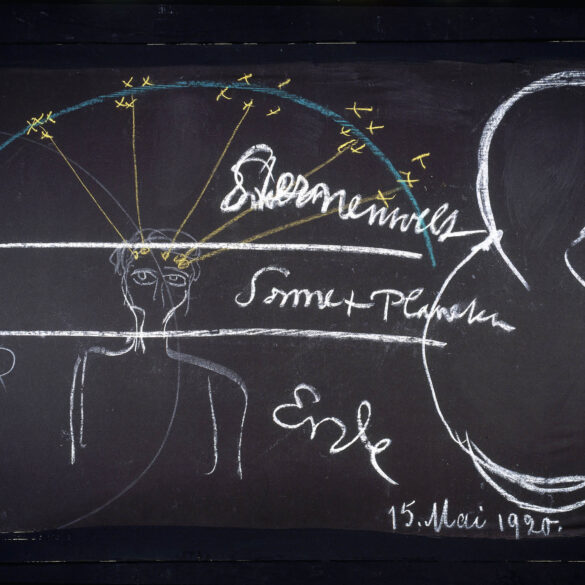 Sternenwelt
Sonne + Planeten
Erde
15. Mai 1920.